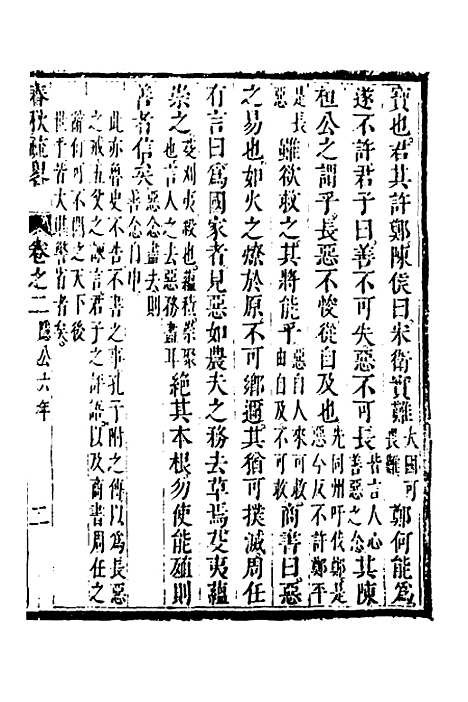 寶也君其許鄭陳侯曰宋衛實難大國可畏難鄭何能為
遂不許君子曰善不可失惡不可長昔言人心善惡之念其陳
桓公之謂乎長惡不悛從自及也先同州吁伐鄭是惡今反不許鄭平
是長惡雖欲救之其將能乎惡自人來可救由自及不可救商書曰惡
之易也如火之燎於原不可鄉邇其猶可撲滅周任
有言曰為國家者見惡如農夫之務去草焉芟夷蘊
崇之芟刈夷殺也蘊積崇聚也言人之去惡務盡耳絕其本根勿使能殖則
善者信矣惡念盡去則善念自申
此亦魯史不告不書之事孔子附之傳以為長惡
之戒五父之諫言君子之評語以及商書周任之
論何可不聞之天下後
世乎昔大眼警省者矣
春秋疏畧 卷之二 隱公六年 二